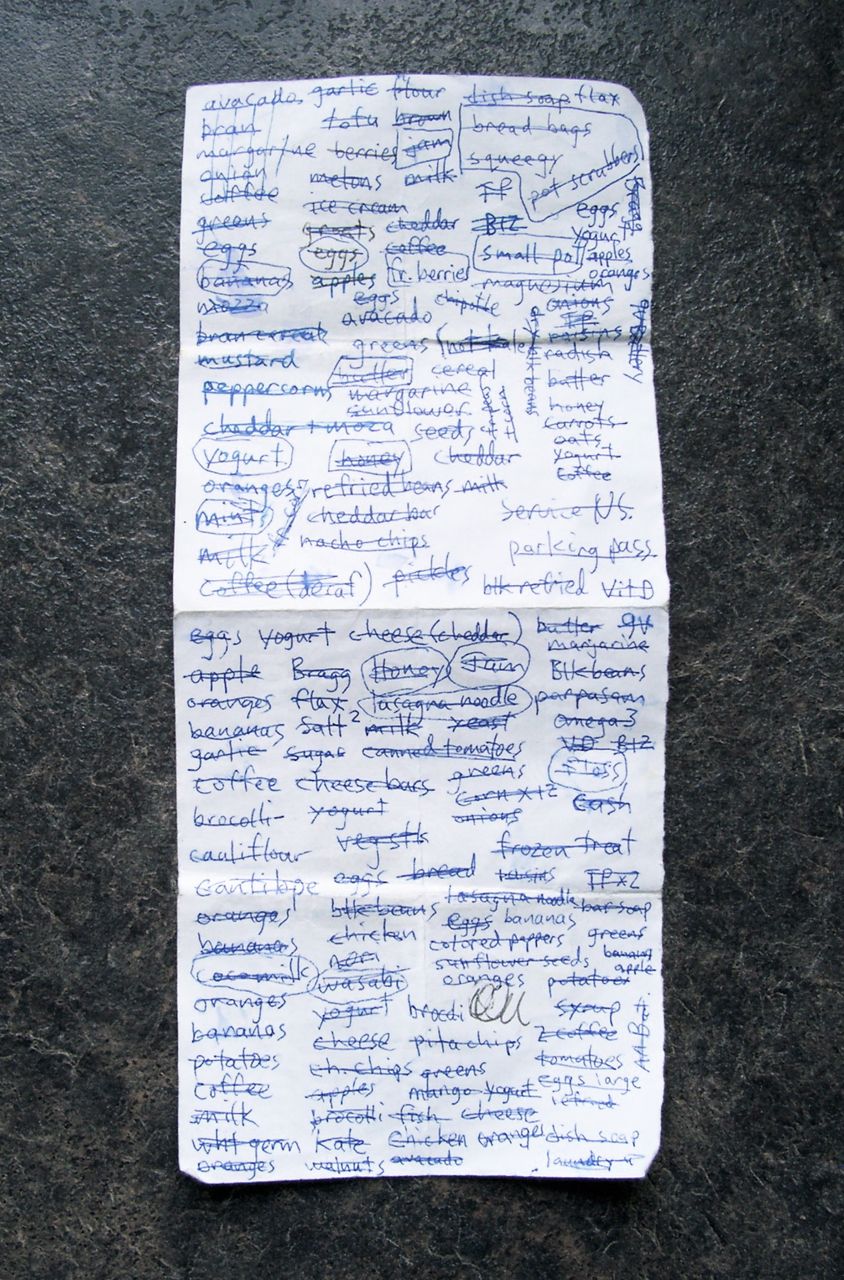 avocados garlic flour dish soap flax
bran tofu brown bread bags
margarine berries jam squeegy
onion melons milk pot scrubbers
coffee ice cream TP
greens cheddar B12 eggs
eggs eggs coffee small pot yogurt apples
bananas apples fr. berries oranges
mozza eggs chipotle magnesium
avocado onions
bran cereal greens TP
mustard butter cereal raisins
peppercorns margarine radish
sunflower butter
cheddar + moza seeds honey
yogurt honey cheddar carrots
oats
yogurt
oranges refried beans milk coffee
mints cheddar bar service NS.
milk nacho chips parking pass
coffee (decaf) pickles blk refried Vit D
eggs yogurt cheese (cheddar) butter
margarine
apple Bragg Honey Jam Blk beans
oranges flax lasagna noodle parpasan
bananas Salt 2 milk yeast omega 3
garlic sugar canned tomatoes VD B12
coffee cheese bars greens floss
brocolli yogurt corn x 12 cash
onions
cauliflour vegstk frozen treat
cantilope eggs bread raisins TP x 2
oranges blk beans lasagna noodle bar soap
bananas chicken eggs bananas greens
nori colored peppers bananas
coco milk wasabi sunflower seeds apple
oranges potatoes
oranges yogurt brocoli syrup
bananas cheese pita chips 2 coffee AA Batt
potatoes ch. chips greens tomatoes
coffee apples mango yogurt eggs large
milk brocolli fish cheese refried
wht germ kale chicken oranges dish soap
oranges walnuts avocado laundry